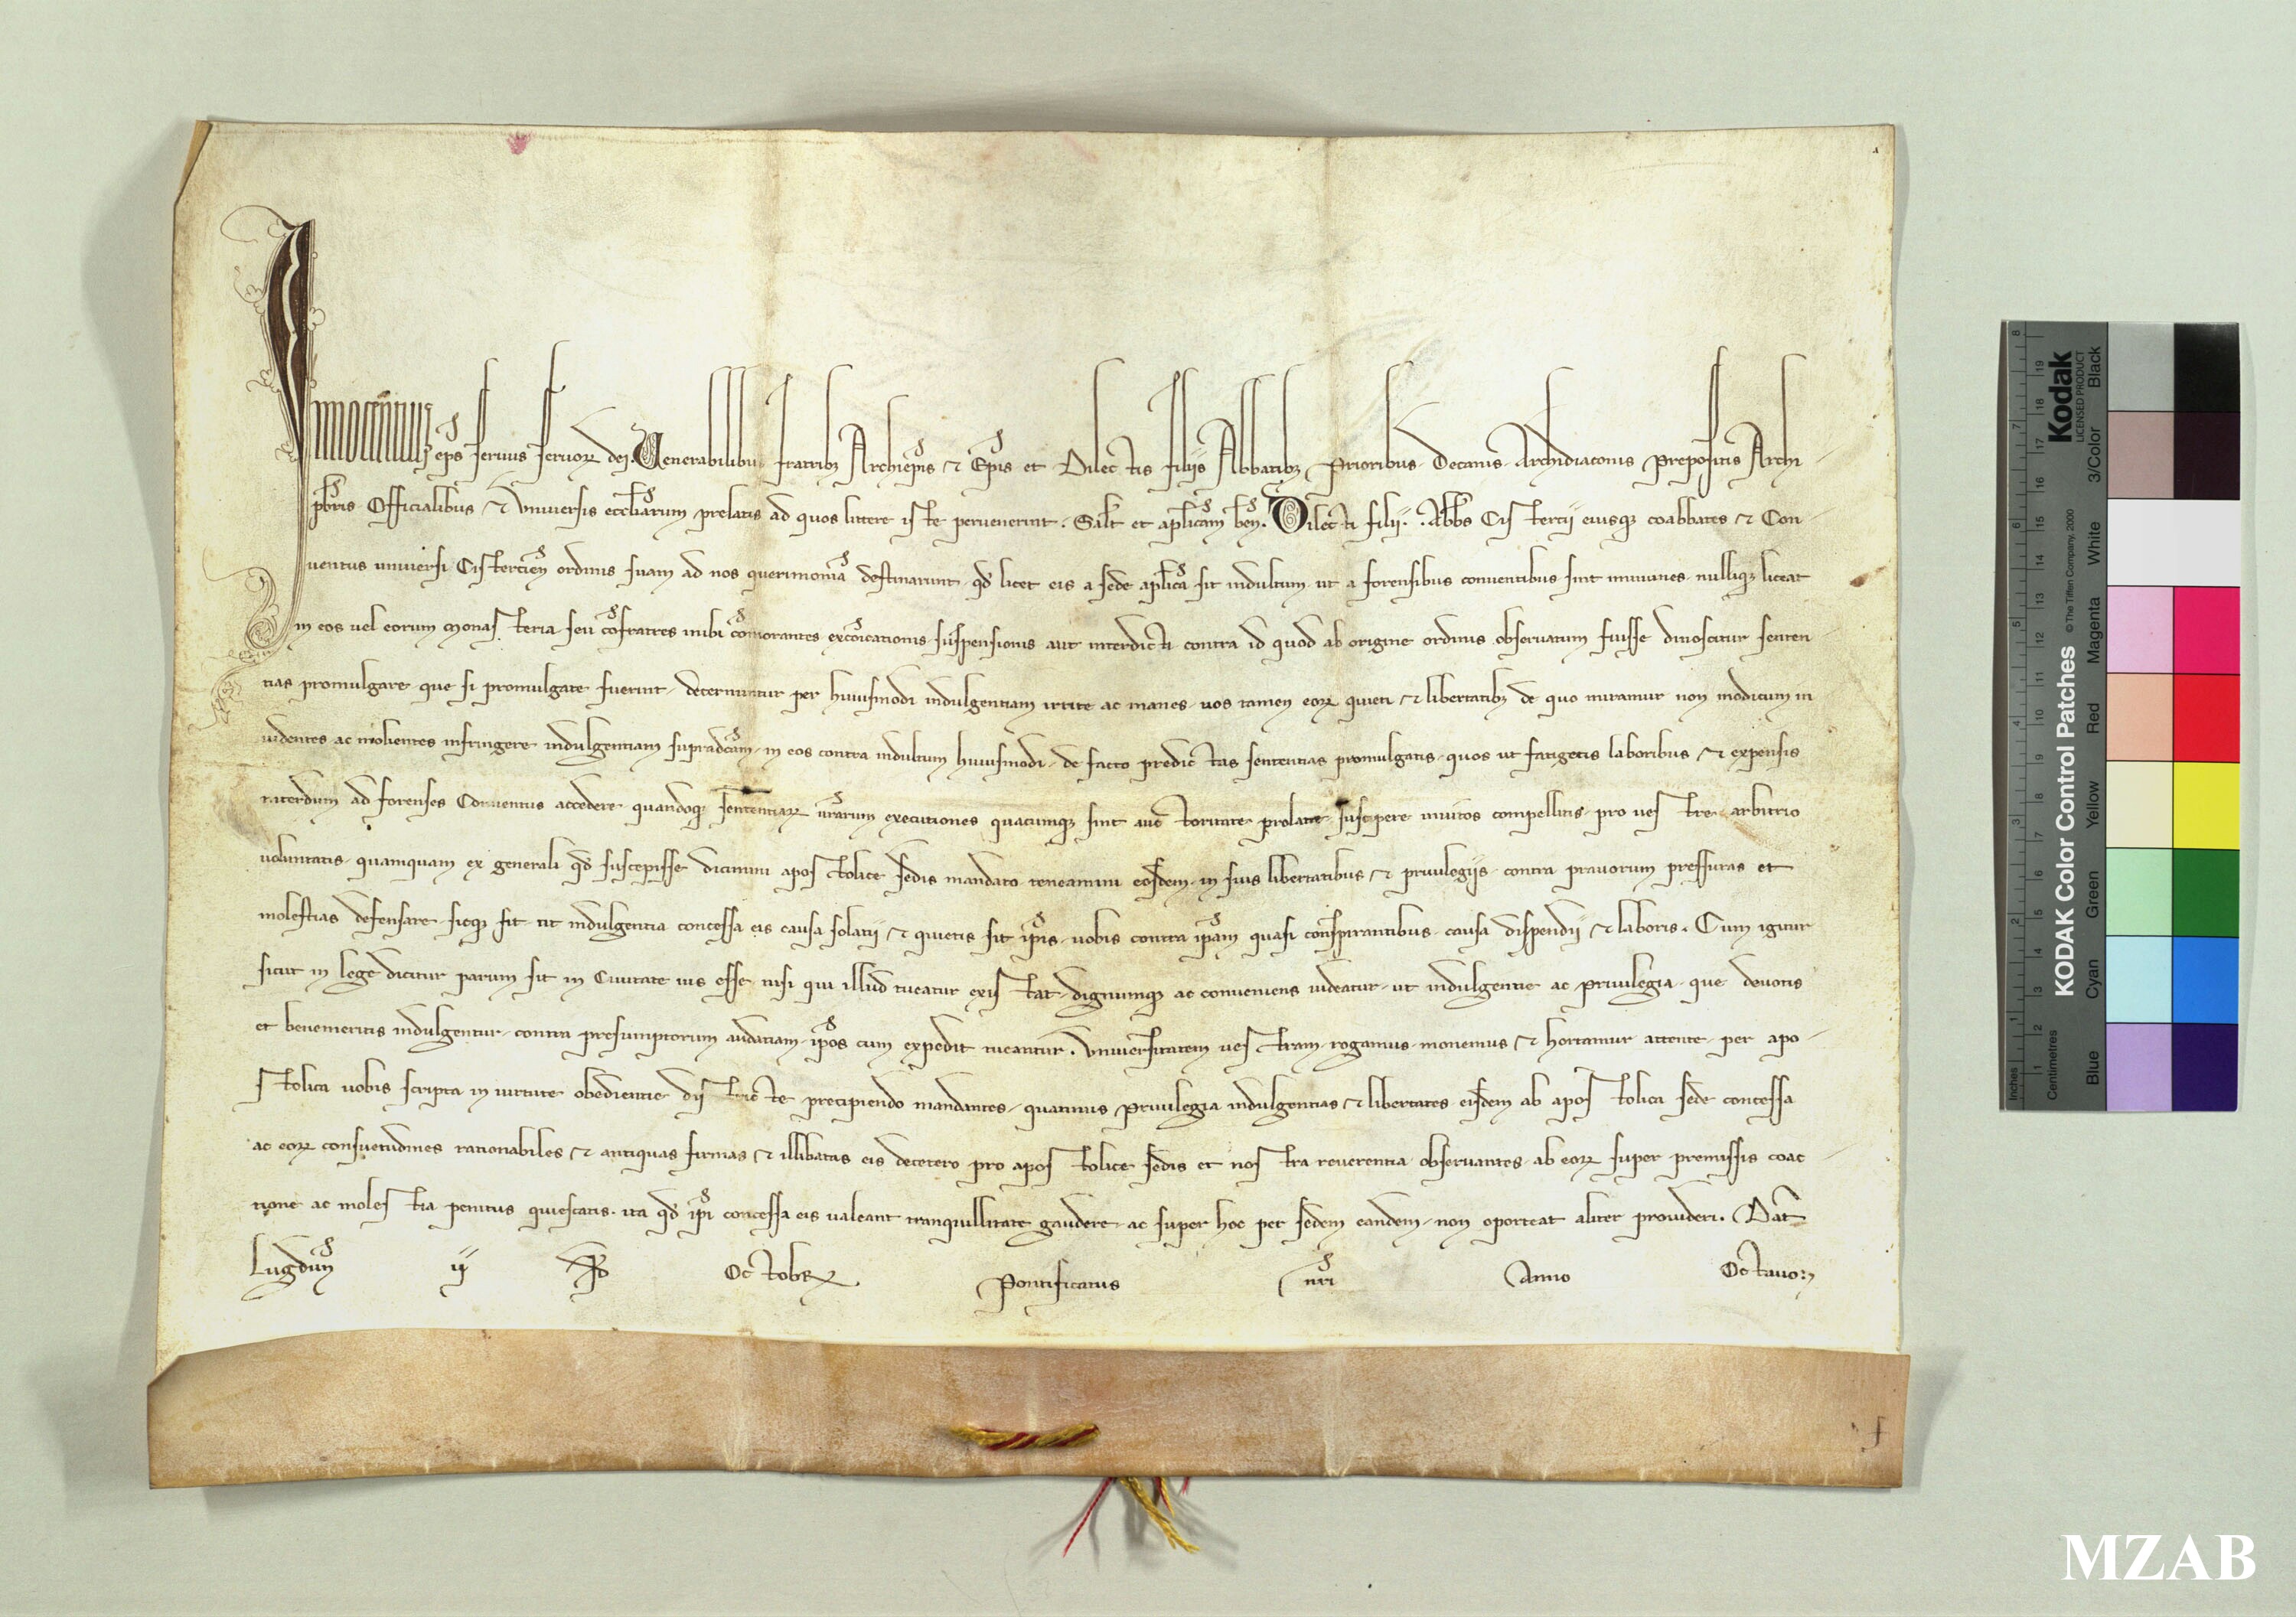 Innocentius ep̄s servus servoꝝ dei. Venerabilibus fratribꝫ Archiep̄is ⁊ Ep̄is et Dilectis filiis Abbatibꝫ Prioribus Decanis Archidiaconis Prepositis Archi-
pb̄ris Officialibus ⁊ Universis eccl̄iarum prelatis ad quos littere iste pervenerint. Salt̄ et apl̄icam ben̄. Dilecti filii. .Abb̄s Cistercii eiusqꝫ coabbates ⁊ Con-
ventus universi Cistercien̄ ordinis suam ad nos querimoniā destinarunt. qd̄ licet eis a sede apl̄ica sit indultum ut a forensibus conventibus sint immunes. nulliqꝫ liceat
in eos vel eorum Monasteria seu cōfratres inibi cōmorantes excōicationis suspensionis aut interdicti contra id quod ab origine ordinis observatum fuisse dinoscitur senten
tias promulgare. que si promulgate fuerint. decernuntur per huiusmodi indulgentiam irrite ac inanes. vos tamen eoꝝ quieti ⁊ libertatibꝫ de quo miramur non modicum in
videntes ac molientes infringere indulgentiam supradc̄am. in eos contra indultum huiusmodi. de facto predictas sententias promulgatis. quos ut fatigetis laboribus ⁊ expensis
interdum ad forenses Conventus accedere quandoqꝫ sententiaꝝ vr̄arum executiones quacumqꝫ sint auctoritate prolate suscipere invitos compellitis. pro vestre arbitrio
voluntatis. quamquam ex generali qd̄ suscepisse dicimini apostolice sedis mandato teneamini eosdem. in suis libertatibus ⁊ privilegiis. contra pravorum pressuras et
molestias defensare. sicqꝫ fit ut indulgentia concessa eis causa solatii ⁊ quietis sit ip̄is. vobis contra ip̄am quasi conspirantibus. causa dispendii ⁊ laboris. Cum igitur
sicut in lege dicitur parum sit in Civitate ius esse nisi qui illud tueatur existat. dignumqꝫ ac conveniens videatur. ut indulgentie ac privilegia. que devotis
et benemeritis indulgentur. contra presumptorum audatiam. ip̄os cum expedit tueantur. Universitatem vestram. rogamus. monemus ⁊ hortamur attente. per apo-
stolica vobis scripta in virtute obedientie districte precipiendo mandantes. quatinus privilegia indulgentias ⁊ libertates eisdem ab apostolica sede concessa
ac eoꝝ consuetudines rationabiles ⁊ antiquas firmas ⁊ illibatas eis decetero pro apostolice sedis et nostra reverentia observantes. ab eoꝝ super premissis coac-
tione ac molestia penitus quiescatis. ita qd̄ ip̄i concessa eis valeant tranquillitate gaudere. ac super hoc per sedem eandem. non oporteat aliter provideri. Dat̄
Lugdun̄ ij Octobꝝ Pontificatus nr̄i Anno Octavo.
MZAB
KODAK Color Control Patches © The Tiffen Company, 2000
Kodak
LICENSED PRODUCT
Blue Cyan Green Yellow Red Magenta White 3/Color Black
Inches 1 2 3 4 5 6 7 8
Centimetres 1 2 3 4 5 6 7 8 9 10 11 12 13 14 15 16 17 18 19